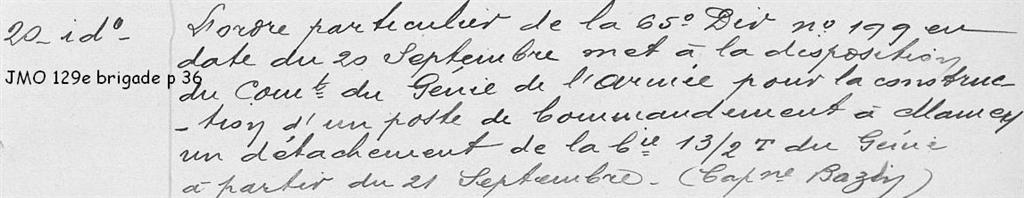 20 - idº - L'ordre particulier de la 65º Div nº 199 en
date du 20 Septembre met à la disposition
JMO 129e brigade p 36
du Comt du Génie de l'Armée pour la construc-
-tion d'un poste de Commandement à Mamey
un détachement de la Cie 13/2 T du Génie
à partir du 21 Septembre - (Capne Bazin)